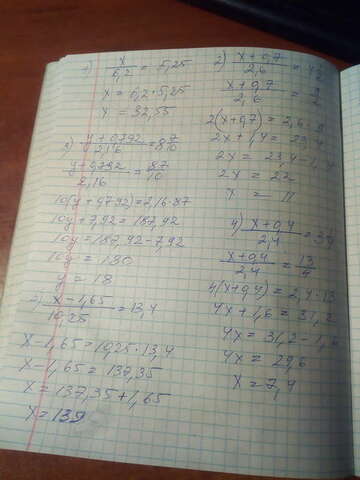 1) x/6,2 = 5,25
x = 6,2 · 5,25
x = 32,55
3) y+0,792/2,16 = 8 7/10
y+0,792/2,16 = 87/10
10(y+0,792) = 2,16·87
10y + 7,92 = 187,92
10y = 187,92 - 7,92
10y = 180
y = 18
x - 1,65/10,25 = 13,4
x - 1,65 = 10,25 · 13,4
x - 1,65 = 137,35
x = 137,35 + 1,65
x = 139
2) x + 0,7/2,6 = 4 1/2
x + 0,7/2,6 = 9/2
2(x+0,7) = 2,6 · 9
2x + 1,4 = 23,4
2x = 23,4 - 1,4
2x = 22
x = 11
4) x + 0,4/2,4 = 3 1/4
x + 0,4/2,4 = 13/4
4(x+0,4) = 2,4 · 13
4x + 1,6 = 31,2
4x = 31,2 - 1,6
4x = 29,6
x = 7,4